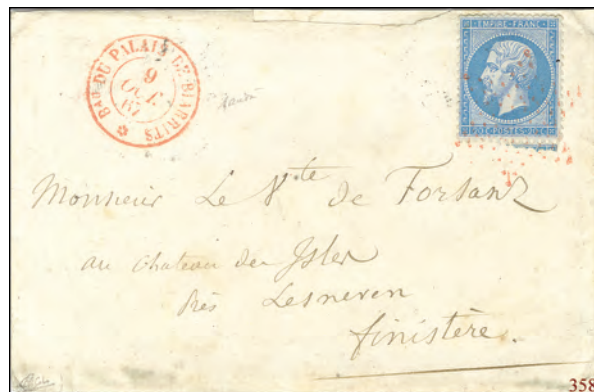 EMPIRE FRANC
20 C POSTES 20 C
BAU DU PALAIS DE BIARRITS
9
OCT.
67
Monsieur Le Vte de Forsanz
au Chateau des Isles
Près Lesneven
finistère.
358